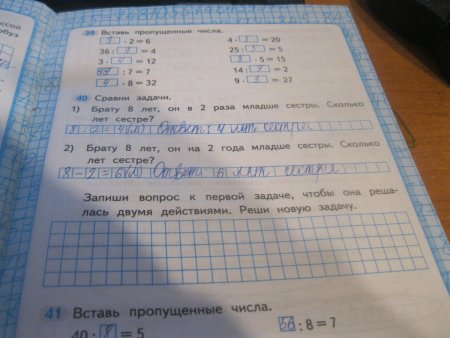 39 Вставь пропущенные числа.
3 · 2 = 6 4 · 5 = 20
36 : 9 = 4 25 : 5 = 5
3 · 4 = 12 3 · 5 = 15
49 : 7 = 7 14 : 7 = 2
4 · 8 = 32 9 · 3 = 27
40 Сравни задачи.
1) Брату 8 лет, он в 2 раза младше сестры. Сколько
лет сестре?
8 : 2 = 4 (л) Ответ: 4 лет сестре
2) Брату 8 лет, он на 2 года младше сестры. Сколько
лет сестре?
8 - 2 = 6 (л) Ответ 6 лет
Запиши вопрос к первой задаче, чтобы она реша-
лась двумя действиями. Реши новую задачу.
41 Вставь пропущенные числа.
40 : 8 = 5 56 : 8 = 7